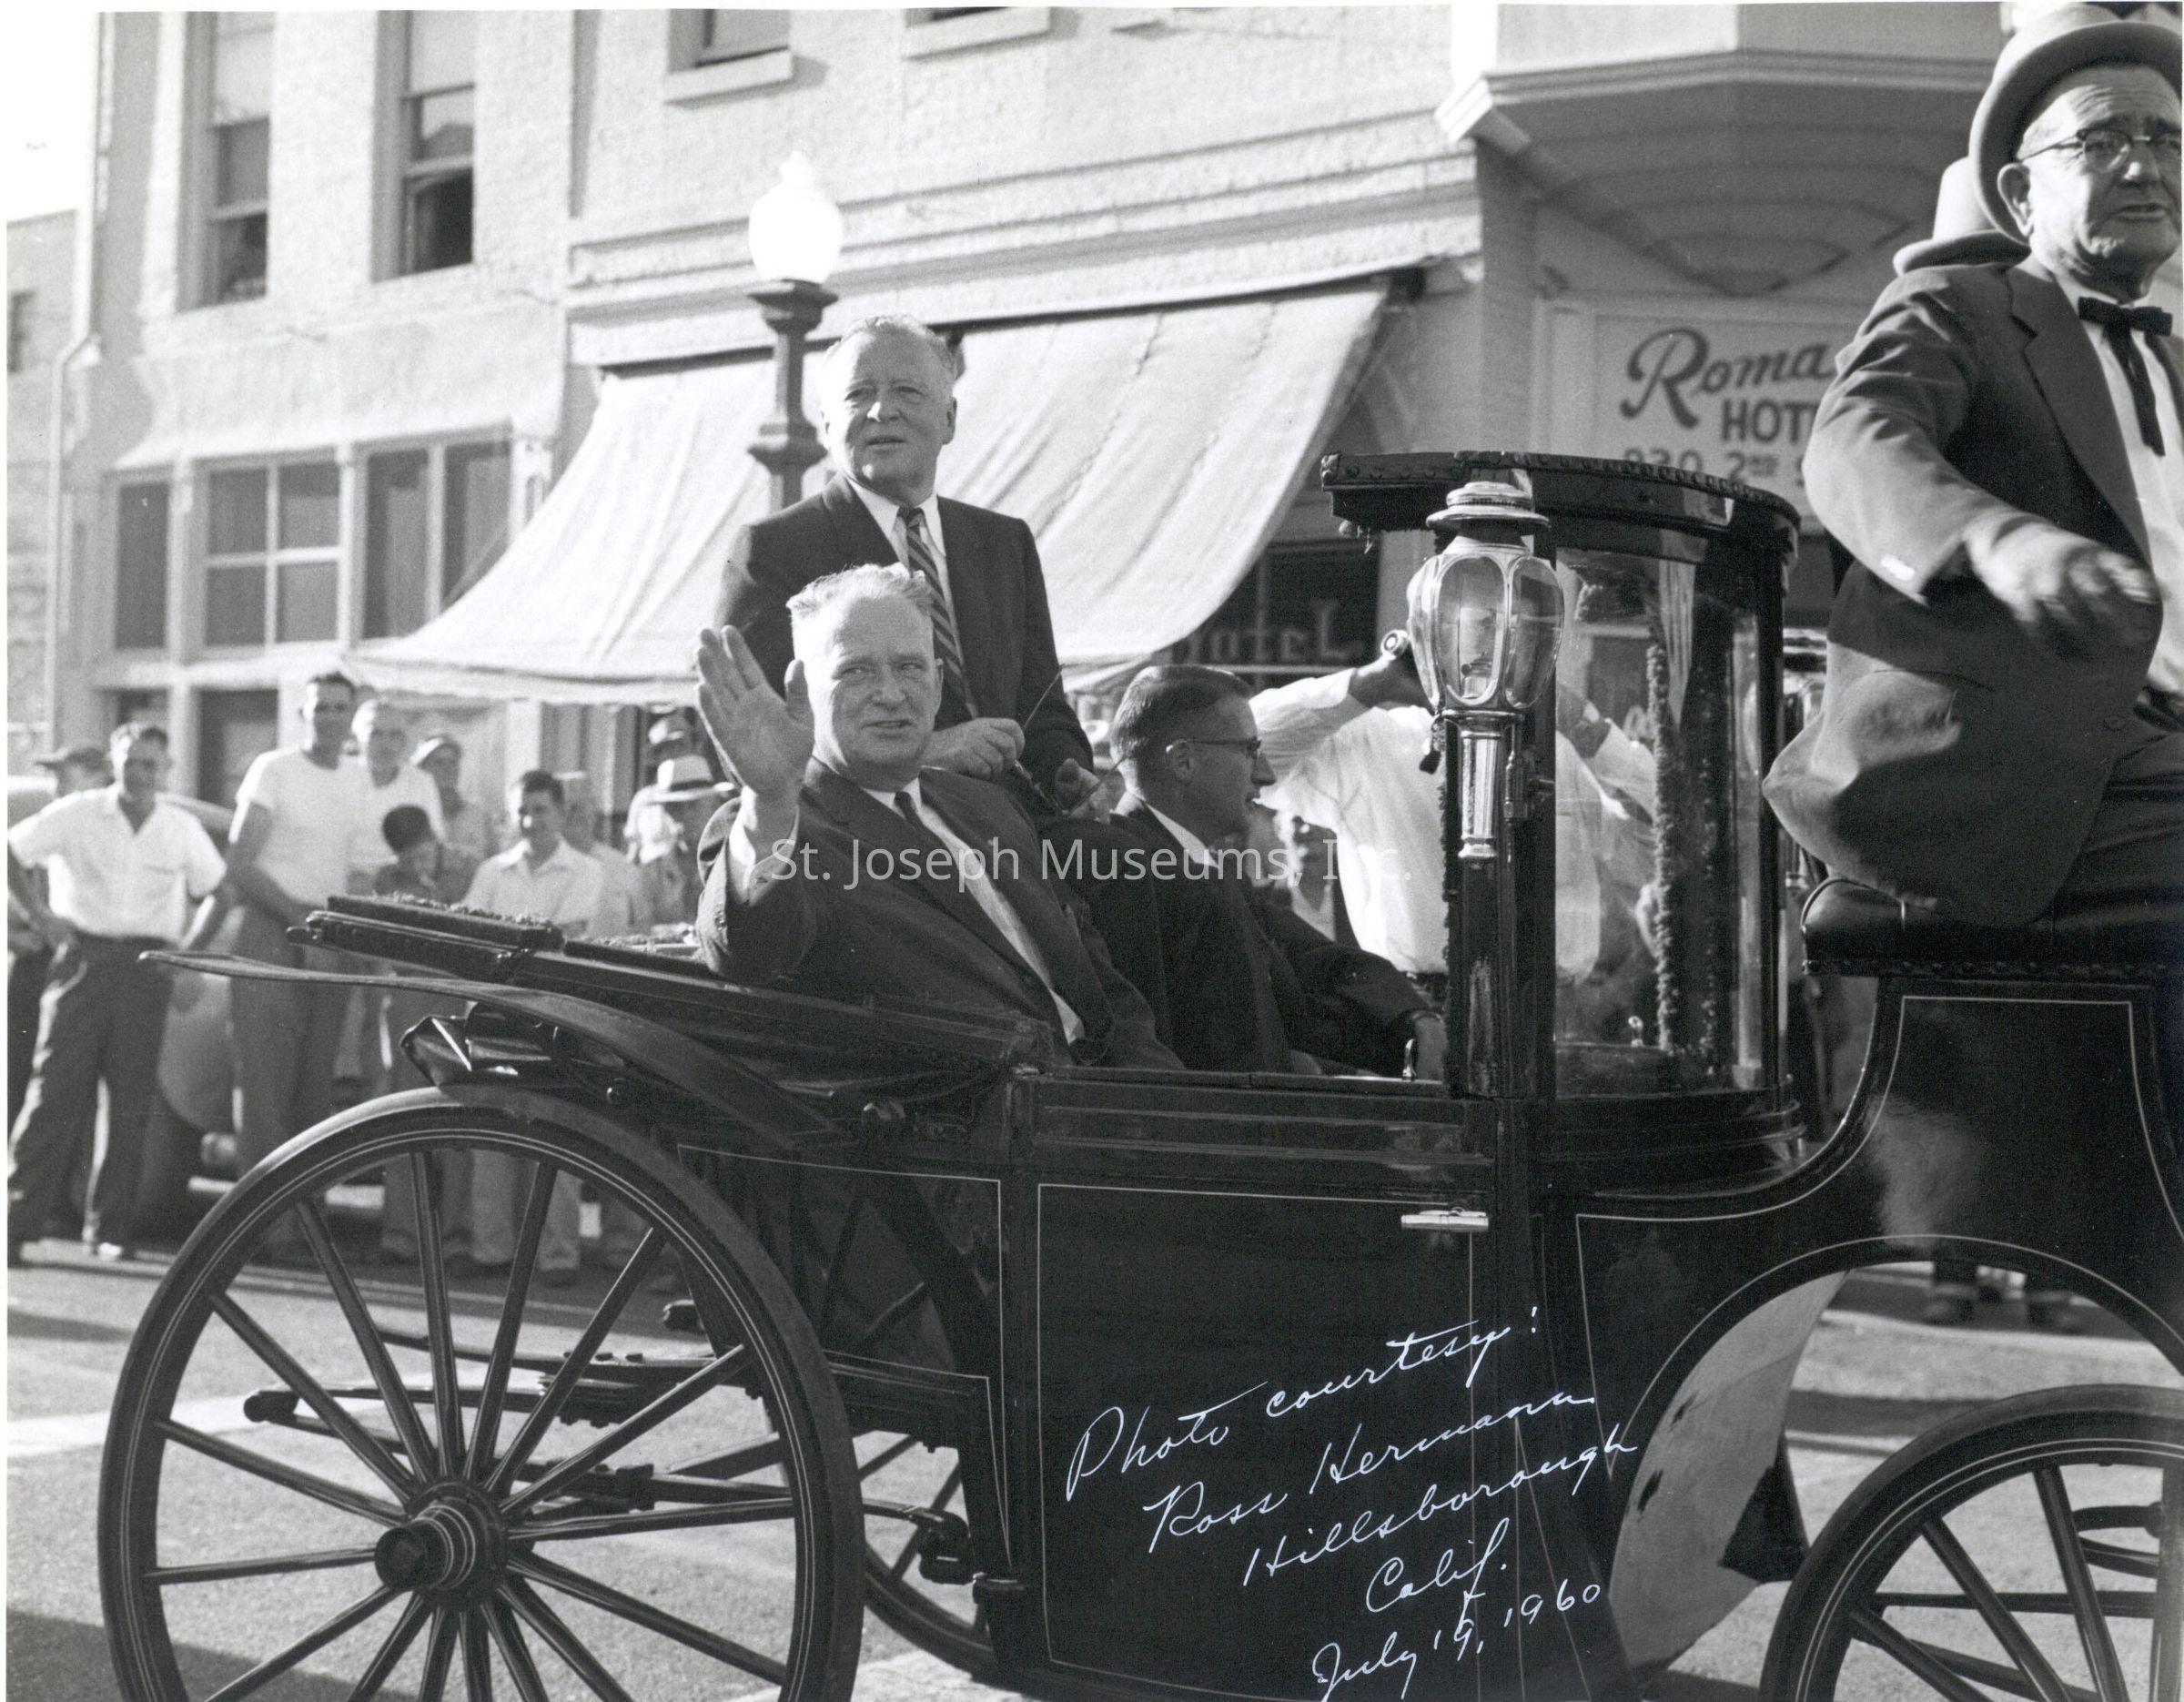 Roma
HOT
930 2ND S
HOTEL
St. Joseph Museums, Inc.
Photo courtesy:
Ross Hermann
Hillsborough
Calif.
July 19, 1960